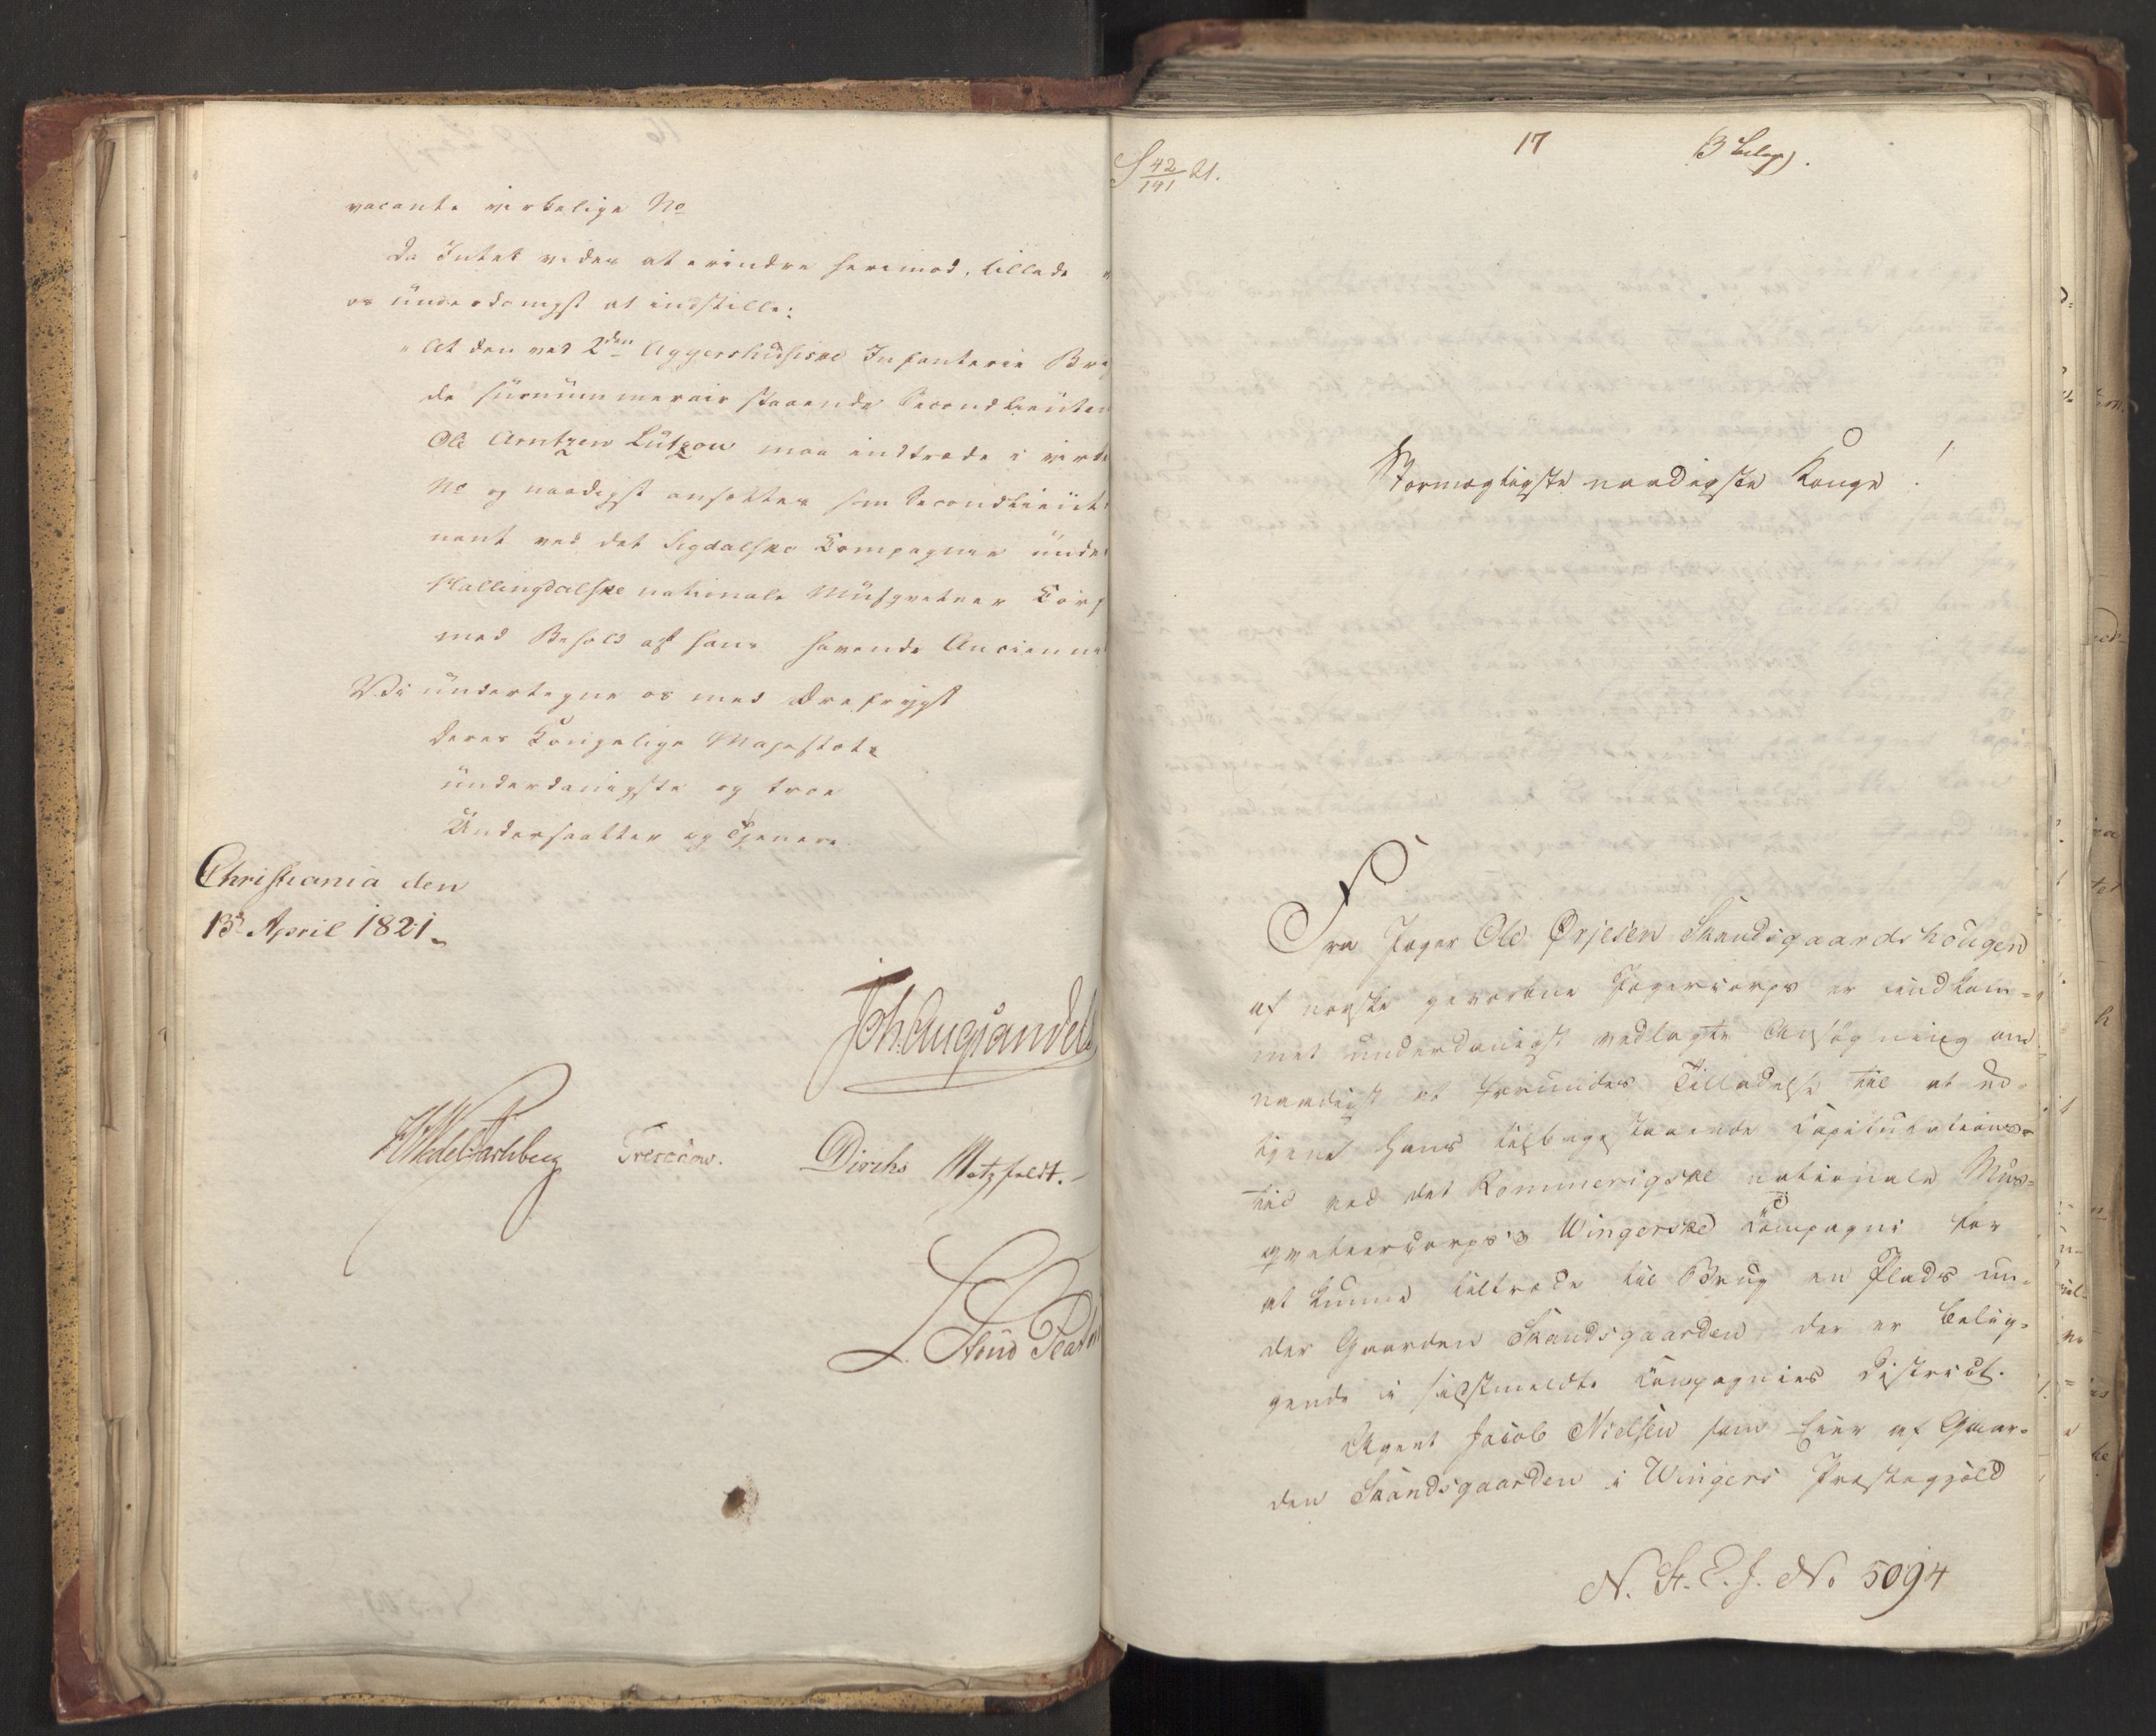 vacante virkelige No
Da Intet vides at erindre herimod, tillade v
os underdanigst at indstille:
"At den ved 2den Aggershusiske Infanterie Brig
de surnummerair staaende Secondlieuten
Ole Arntzen Lützow maa indtræde i virke
No og naadigst ansættes som Secondlieute
nant ved det Sigdalske Compagnie under
Hallingdalske nationale Musqueteer Corps
med Behold af hans havende Ancienne
Vi undertegne os med Ærefrygt
Deres Kongelige Majestæts
underdanigste og troe
Undersaatter og Tjenere.
Christiania den
13d April 1821.
Joh. Aug Sandels
HWedelJarlsberg Treschow. Diriks Motzfeldt.
L. Stoud Plat
S 42/191 21.
17 (3 Bilag).
Stormægtigste naadigste Konge!
Fra Jæger Ole Ørjesen Skandsgaardshougen
af norske gevorbne Jægercorps er indkom=
met underdanigst vedlagte Ansøgning om
naadigst at forundes Tilladelse til at ud=
tjene hans tilbagestaaende Capitulations=
tid ved det Rommerigske nationale Mus=
queteercorps's Wingerske Compagni for
at kunne tiltræde til Brug en Plads un=
der Gaarden Skandsgaarden, der er belig=
gende i sidstmeldte Compagnies District.
Agent Jacob Nielsen som Eier af Gaar=
den Skandsgaarden i Wingers Præstegjæld
N. St. E. J. No 5094